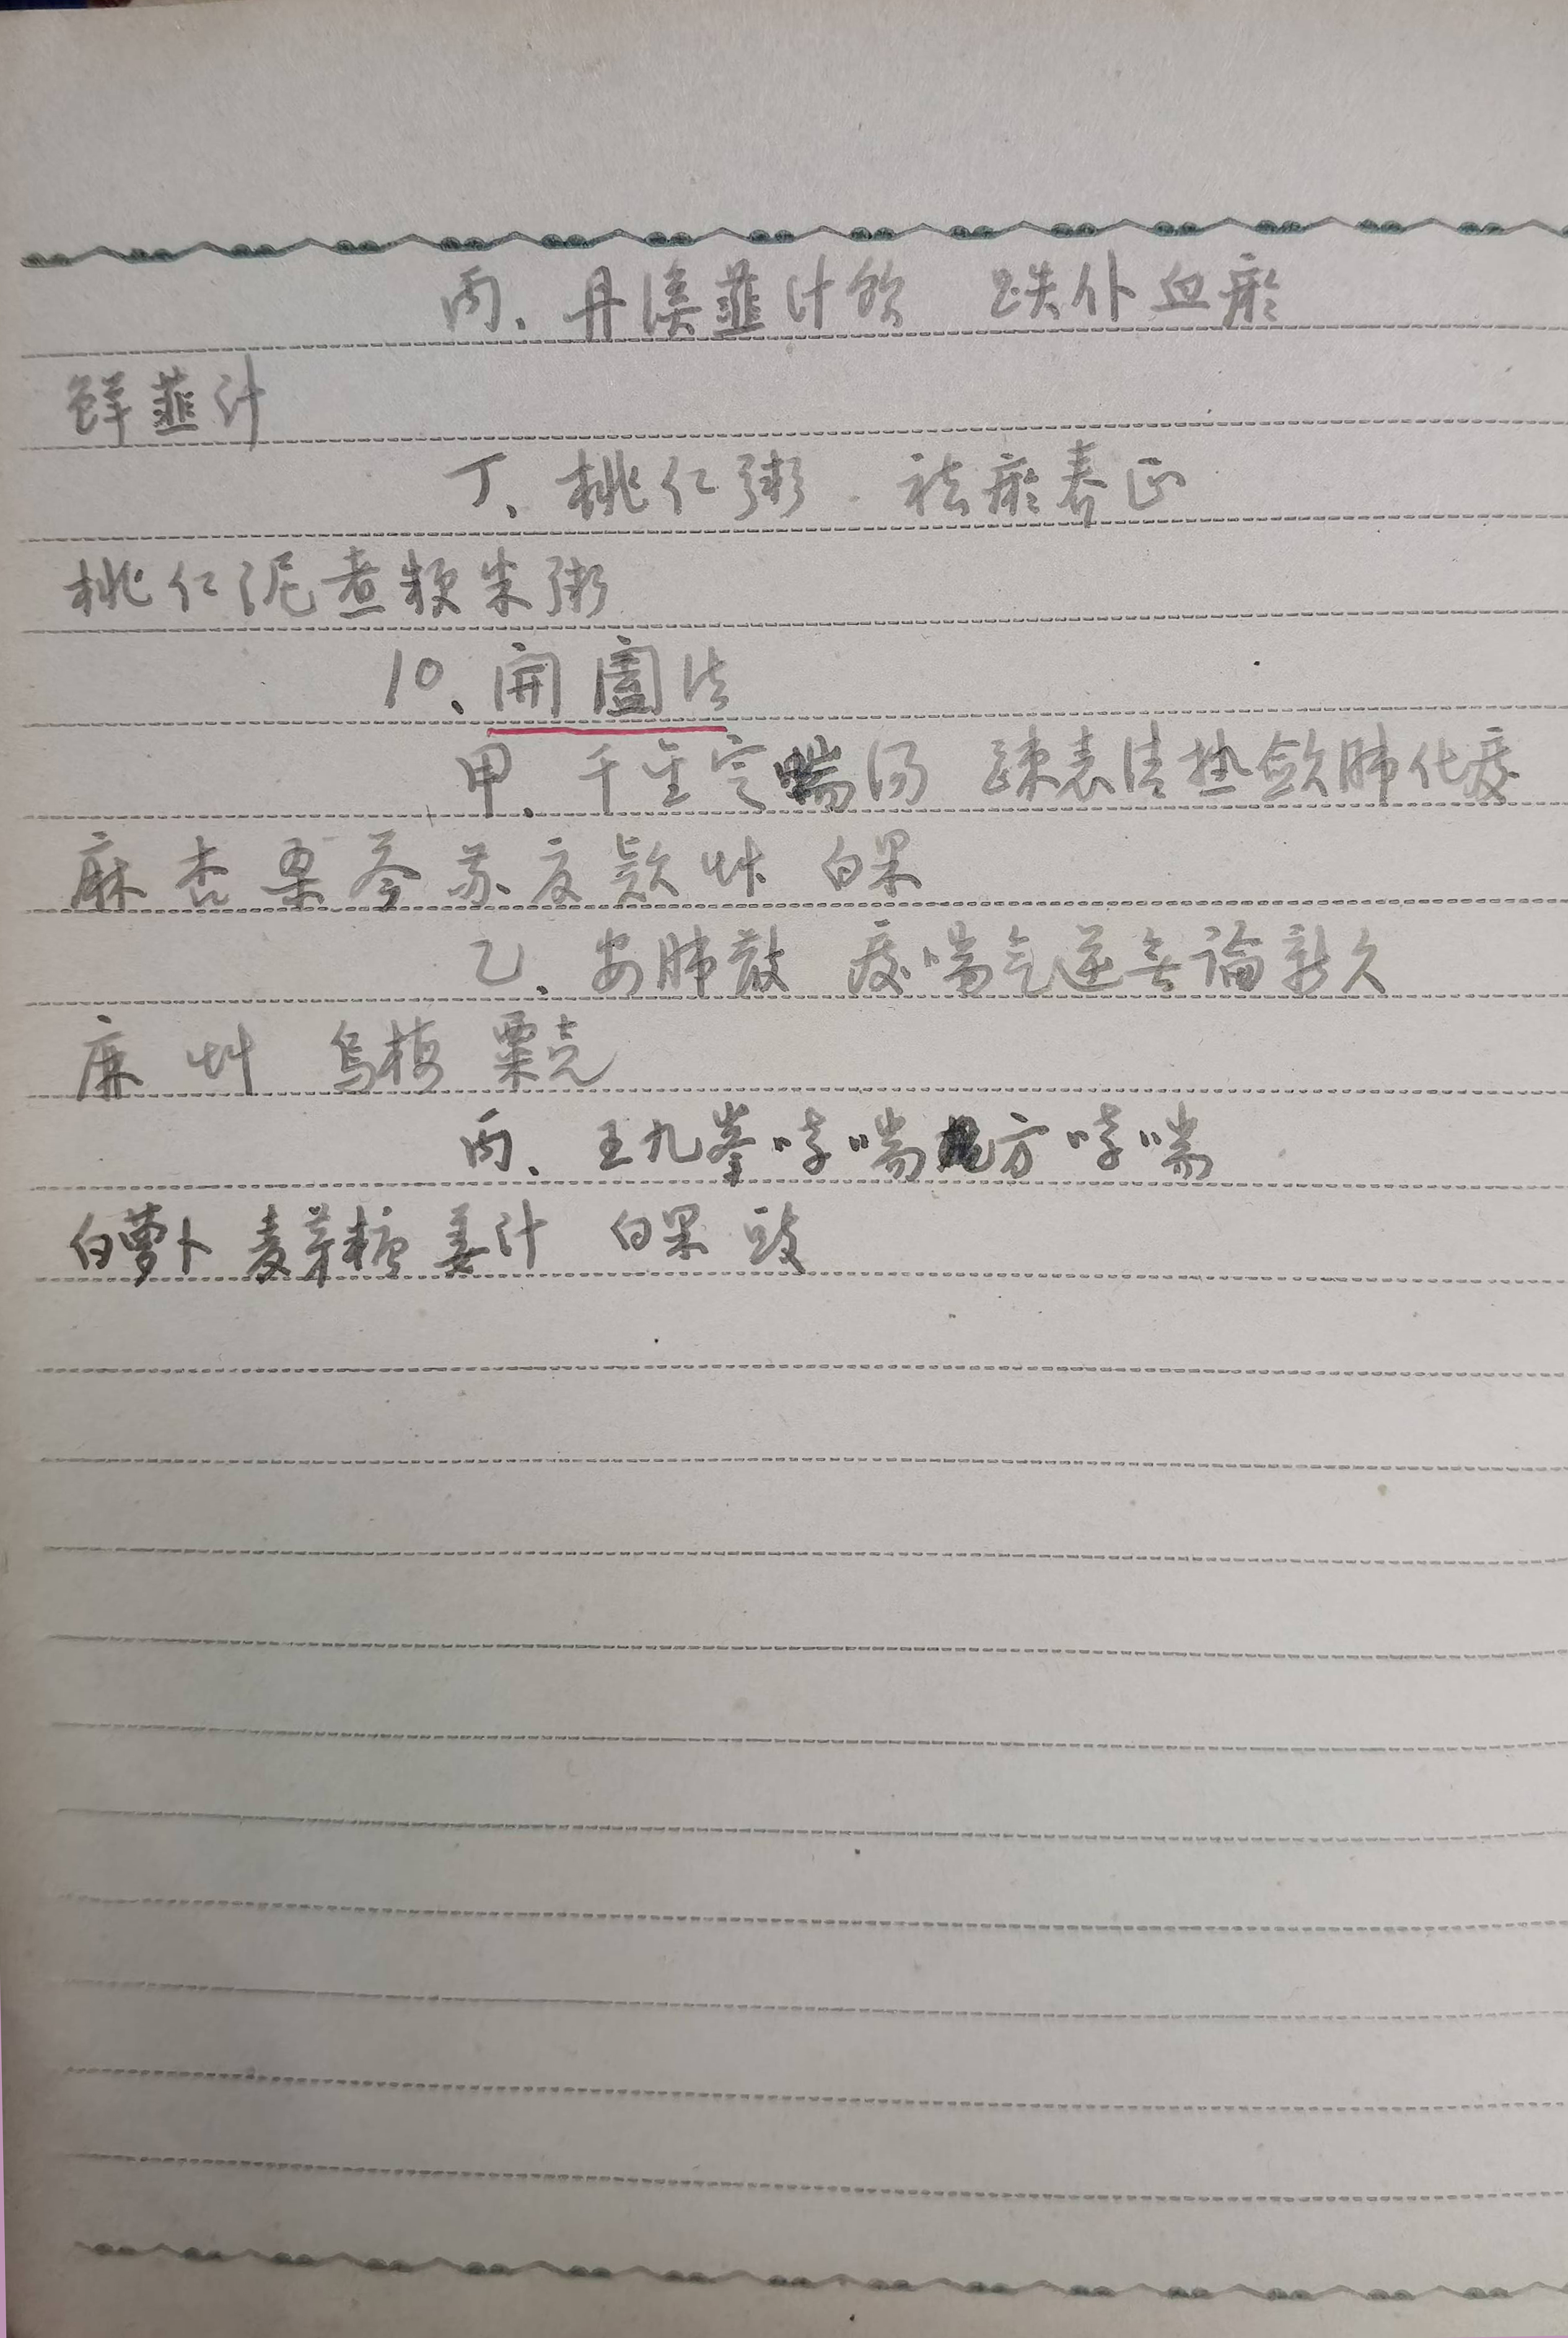 丙、丹溪韮汁飲 跌仆血瘀
鲜韮汁
丁、桃仁粥 祛瘀养正
桃仁泥煮粳米粥
10、開闔法
甲、千金定喘汤 疎表清热歛肺化痰
麻 杏 桑 芩 苏 夏 款 艸 白果
乙、安肺散 痰喘气逆无論新久
麻 艸 乌梅 粟壳
丙、王九峯哮喘方 哮喘
白萝卜 麦芽糖 姜汁 白果 豉